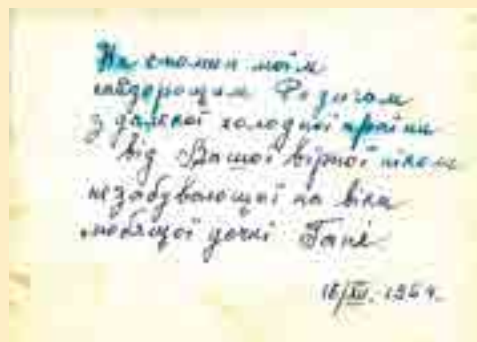 На спомин моїм
найдорощим Родичам
з далекої голодної країни
від Вашої вірної ніколи
незабувающої на віки
люблящої дочкі Гані
18/XII. 1954.